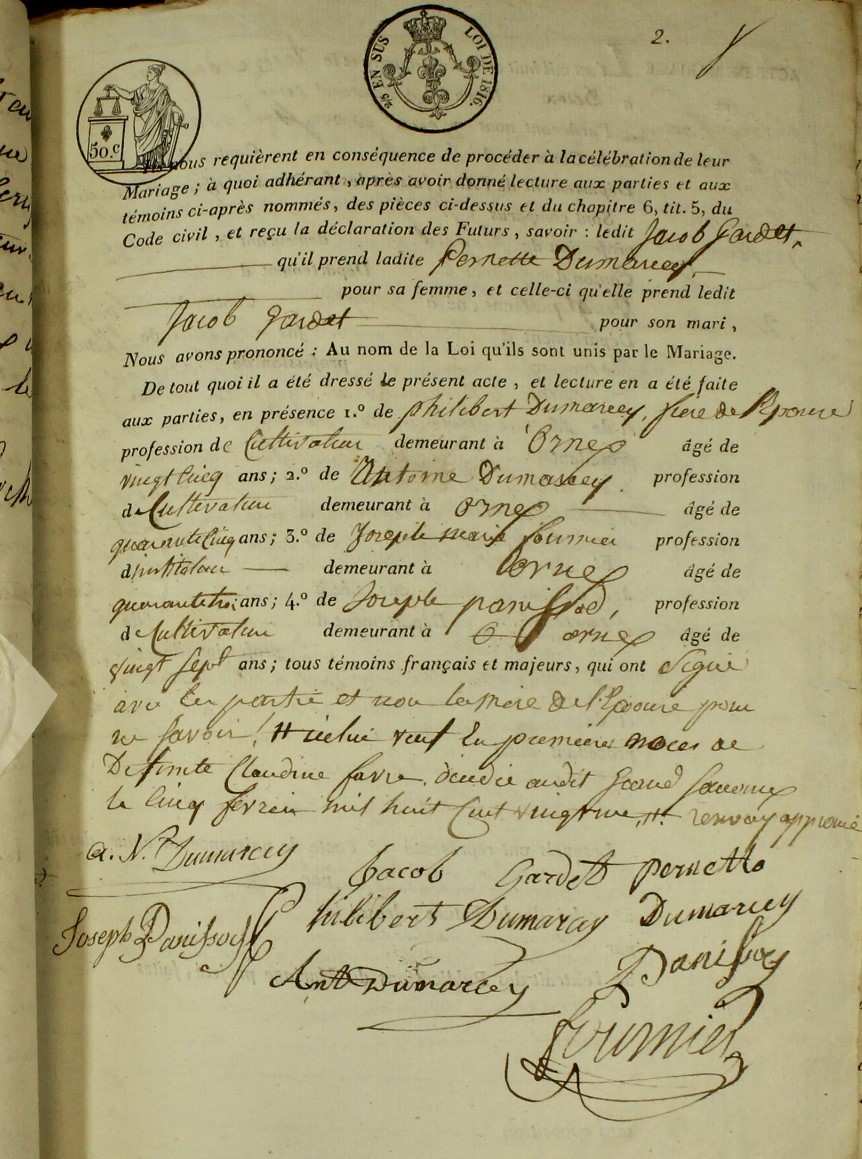 2.
25 EN SUS LOI DE 1816.
50.c
nous requièrent en conséquence de procéder à la célébration de leur
Mariage ; à quoi adhérant, après avoir donné lecture aux parties et aux
témoins ci-après nommés, des pièces ci-dessus et du chapitre 6, tit. 5, du
Code civil, et reçu la déclaration des Futurs, savoir : ledit Jacob Gardet,
qu'il prend ladite Pernette Dumarcey,
pour sa femme, et celle-ci qu'elle prend ledit
Jacob Gardet pour son mari,
Nous avons prononcé : Au nom de la Loi qu'ils sont unis par le Mariage.
De tout quoi il a été dressé le présent acte, et lecture en a été faite
aux parties, en présence 1.º de philibert Dumarcey, frere de l'Epouse
profession de Cultivateur demeurant à Ornex âgé de
vingt cinq ans ; 2.º de Antoine Dumarcey profession
de Cultivateur demeurant à ornex âgé de
quarante cinq ans ; 3.º de Joseph marie fournier profession
d'instituteur demeurant à ornex âgé de
quarante trois ans ; 4.º de Joseph panissod, profession
de Cultivateur demeurant à ornex âgé de
vingt sept ans ; tous témoins français et majeurs, qui ont signé
avec les partie et non la mère de l'Epouse pour
ne savoir veuf En premieres noces de
Defunte Claudine favre, decedée audit Grand Saconnex
le Cinq fevrier mil huit Cent vingt renvoy approuvé
Dumarcey
Jacob Gardet Pernette
Joseph Panissod Philibert Dumarcay Dumarcey
Ant Dumarcey Panissod
Fournier